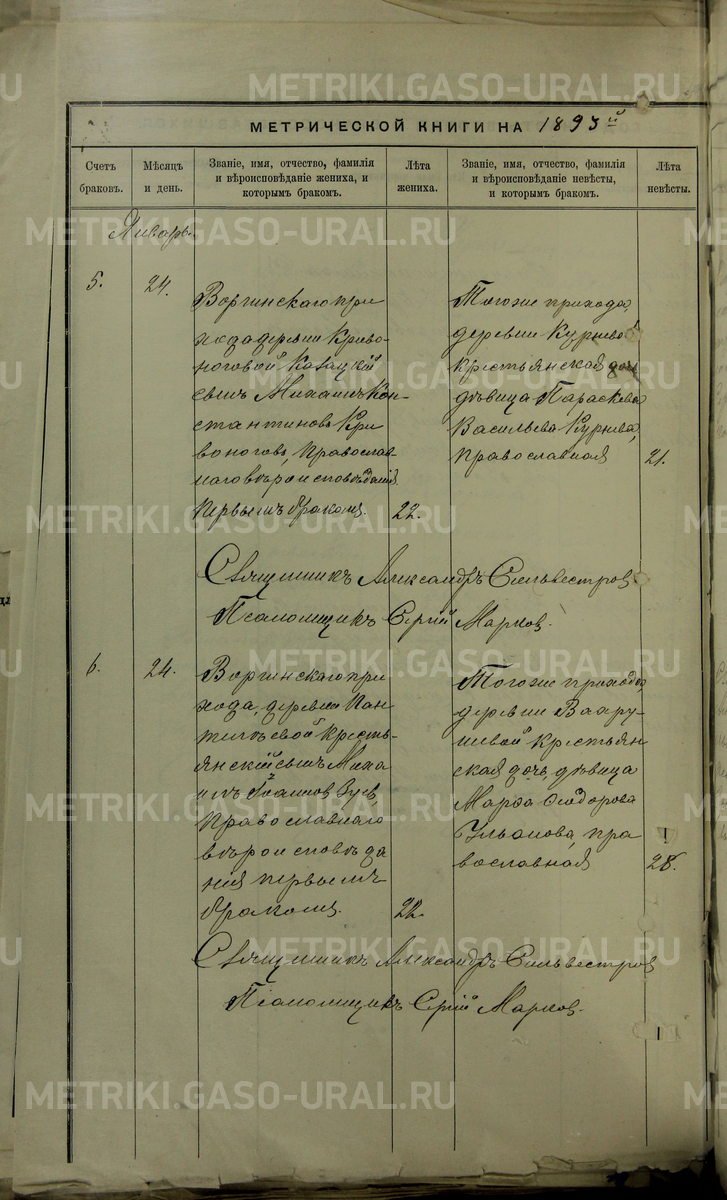 МЕТРИЧЕСКОЙ КНИГИ НА 1893й
Счетъ браковъ.
Мѣсяцъ и день.
Званіе, имя, отчество, фамилія и вѣроисповѣданіе жениха, и которымъ бракомъ.
Лѣта жениха.
Званіе, имя, отчество, фамилія и вѣроисповѣданіе невѣсты, и которымъ бракомъ.
Лѣта невѣсты.
Январь.
5.
24.
Воргинскаго при
хода деревни Криво-
ноговой казацкій
сынъ Михаилъ Кон-
стантиновъ Кри
воноговъ, православ
наго вѣроисповѣданія
первымъ бракомъ.
22.
Тогоже прихода,
деревни Курневой
крестьянская дочь
дѣвица Параскева
Васильева Курнева,
православная
21.
Священникъ Александръ Сильвестровъ.
Псаломщикъ Сергій Марковъ.
6.
24.
Воргинскаго при
хода, деревни Пан
тилѣевой кресть-
янскій сынъ Миха
илъ Зуевъ,
православнаго
вѣроисповѣда
нія первымъ
бракомъ.
22.
Тогоже прихода,
деревни
крестьян
ская дочь, дѣвица
Марѳа Ѳеодорова
Ульянова, пра
вославная
28.
Священникъ Александръ Сильвестровъ
Псаломщикъ Сергій Марковъ.
METRIKI.GASO-URAL.RU